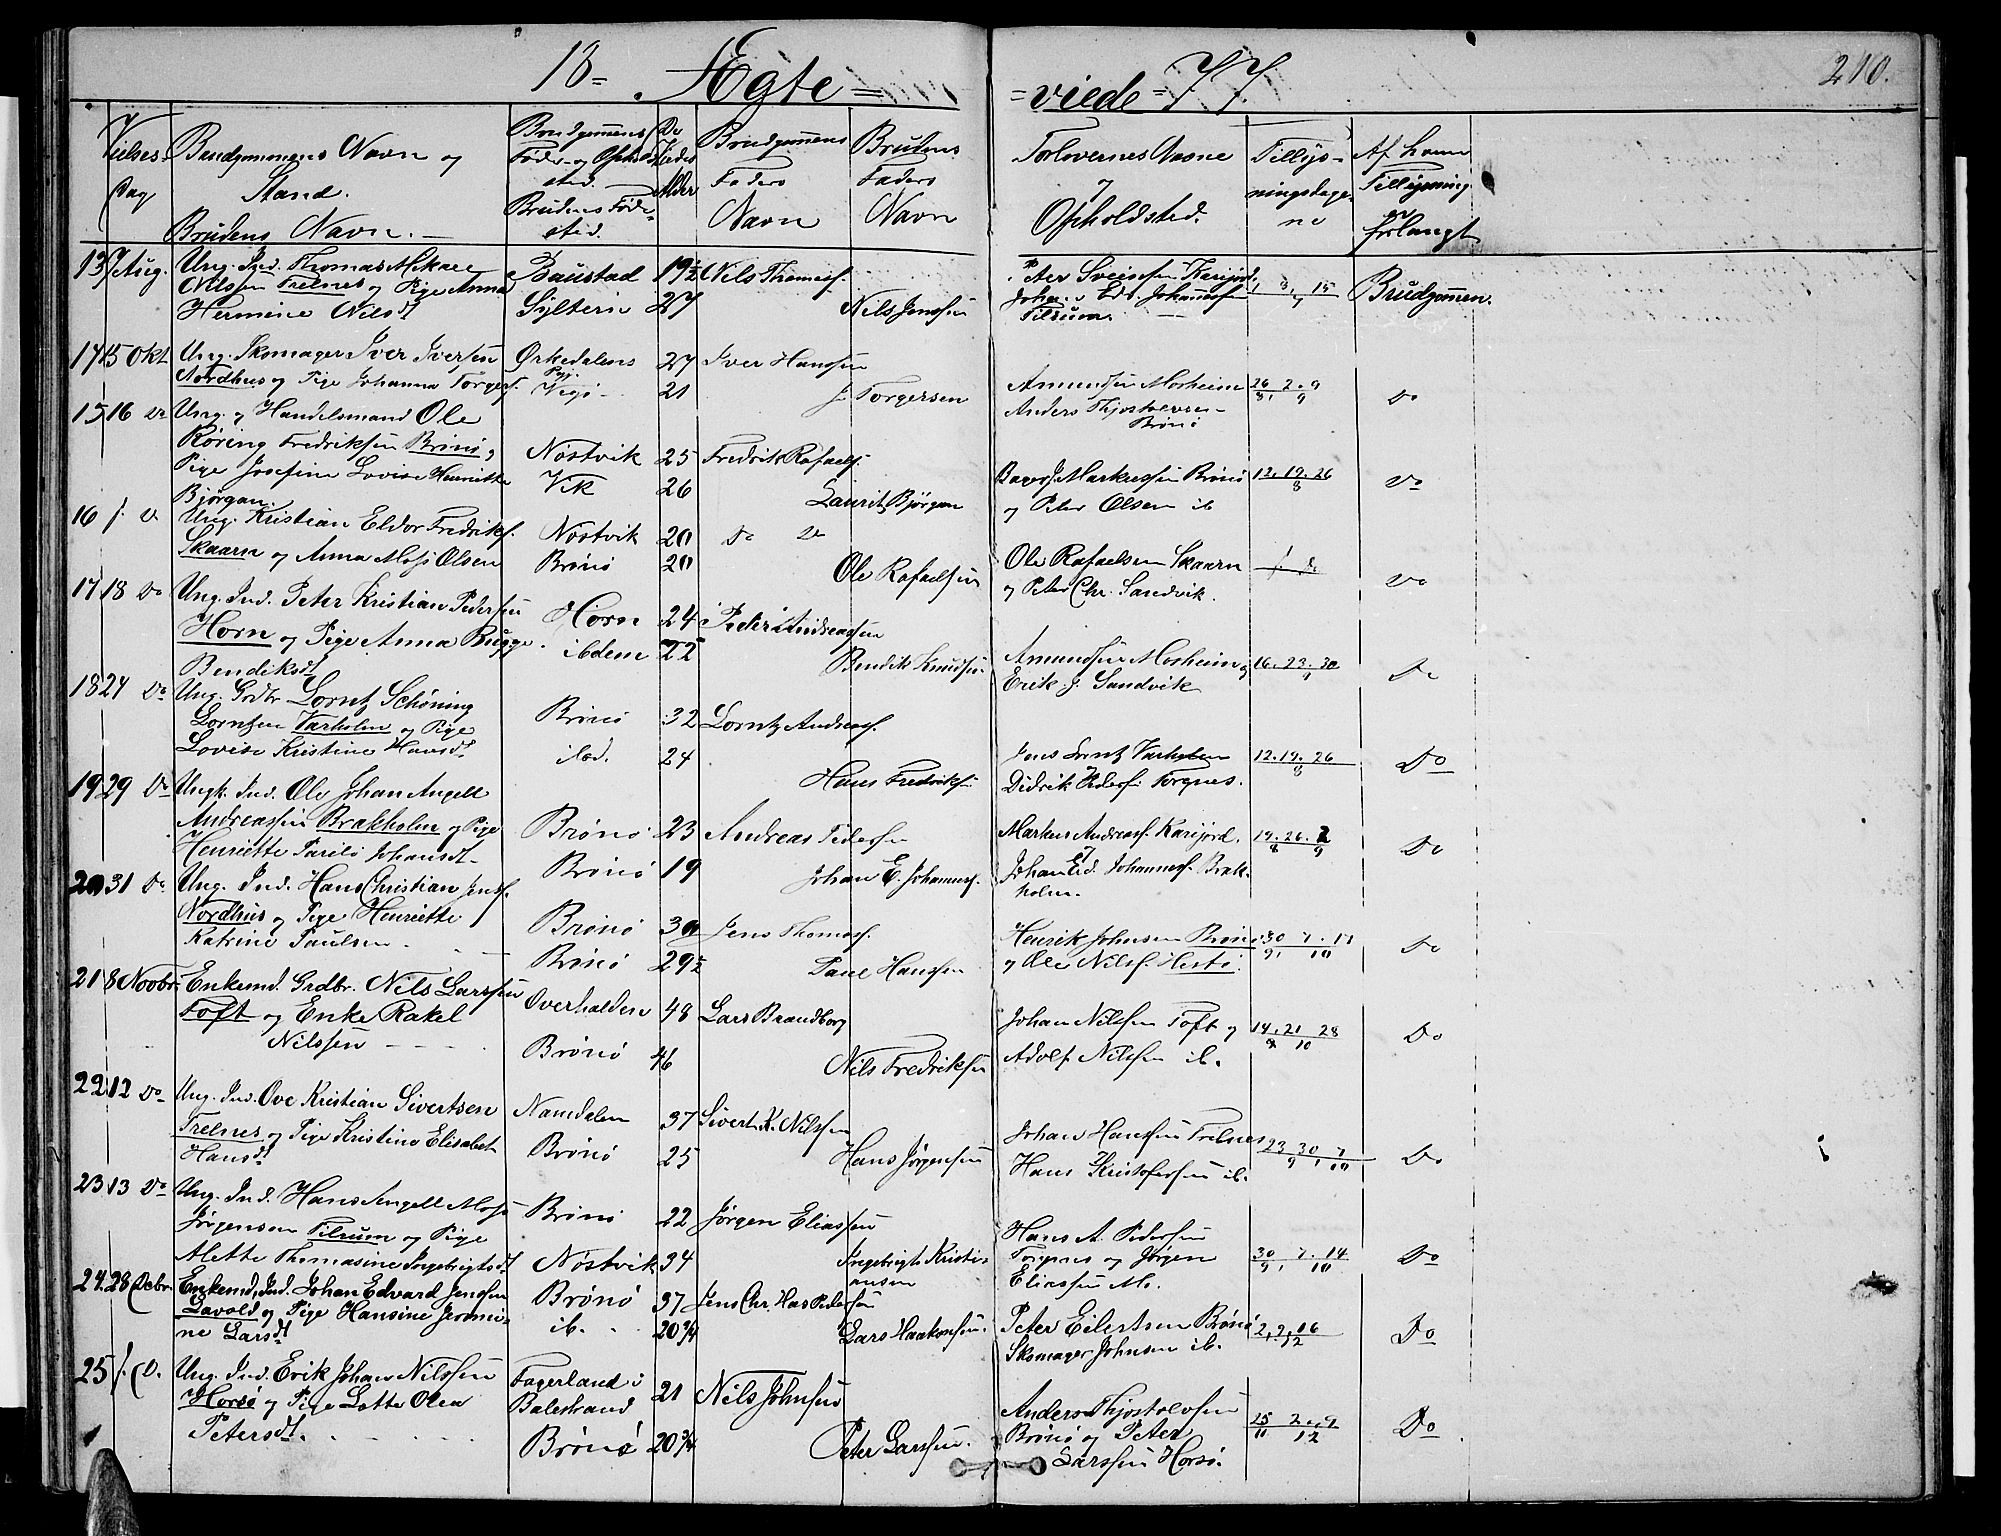 18= Ægte= =viede=77. 210.
Vielses Dag
Brudgommens Navn og Stand.
Brudens Navn.
Brudgommens Føde- og Opholdssted.
Brudens Fødested.
Alder
Brudgommens Faders Navn
Brudens Faders Navn
Forlovernes Navne
Opholdsted.
Tillysningsdagene
Af hvem Tillysning er forlangt
13 7 Aug. Ung. Ind. Thomas Mikael
Nilssen Trelnes og Pige Anna
Hermine Nilsdt
Baustad 19½ Nils Thomass.
Sylterin 27 Nils Jenssen
Johan Edv Johannessen
Tilrum
Brudgommen.
15 Okt Ung. Skomager Iver Iversen
Nordhus og Pige Johanna Torgers.
Ørkedalens Pgj. 27 Iver Hanssen
Vegø 21 J. Torgersen
Amundsen Mosheim
Anders Thjostolvsen
Brønø
26 2. 9
Do
15 16 Do Ung. og Handelsmand Ole
Røring Fredriksen Brønø,
Pige Josefine Lovise Henriette
Bjørgan.
Nøstvik 25 Fredrik Rafaels.
Vik 26 Laurits Bjørgan
Markussen Brønø
og Peter Olsen ib
12. 19. 26
8
Do
16 Ung. Kristian Eldor Fredriks.
Skaarn og Anna Mosj Olsen
Nøstvik 20 Do Do
Brønø 20 Ole Rafaelsen
Ole Rafaelsen Skaarn
og Peter Chr. Sandvik.
Do
17 18 Do Ung. Ind. Peter Kristian Pedersen
Horn og Pige Anna Bugge
Bendiksdt
Horn 24 Peder Andreassen
ibdem 22 Bendik Knudsen
Amundsen Mosheim og
Erik J. Sandvik
16. 23. 30
9
Do
18 24 Do Ung. Grdbr Lorntz Schøning
Lorntzen Varholm og Pige
Lovise Kristine Hansdt
Brønø 32 Lorntz Andreass.
ibd. 24 Hans Fredriks.
Jens Lorntz Varholm
Didrik Peders. Torgnes.
12. 19. 26
8
Do
19 29 Do Ungk. Ind. Ole Johan Angell
Andreassen Brakholm og Pige
Henriette Pareli Johansdt
Brønø 23 Andreas Pedersen
Brønø 19 Johan E. Johanness.
Markus Andreass. Karijord.
Johan Ed. Johanness. Brak-
holm.
19. 26. 2
8 9
Do
20 31 Do Ung. Ind. Hans Christian Jenss.
Nordhus og Pige Henriette
Katrine Paulsen
Brønø 30 Jens Thomass.
Brønø 29½ Paul Hanssen
Henrik Johnsen Brønø
og Ole Nilss. Hestø.
30 7. 14
9, 10
Do
21 8 Novbr. Enkemd. Grdbr. Nils Larssen
Toft og Enke Rakel
Nilssen
Overhalden 48 Lars Brandborg
Brønø 46 Nils Fredriksen
Johan Nilssen Toft og
Adolf Nilssen ib.
14. 21 28
10
Do
22 12 Do Ung. Ind. Ove Kristian Sivertsen
Trelnes og Pige Kristine Elisabet
Hansdt
Namdalen 37 Sivert K. Nilssen
Brønø 25 Hans Jørgensen
Johan Hanssen Trelnes
Hans Kristofersen ib.
23 30 7
9, 10
Do
23 13 Do Ung. Ind. Hans Angell Mosj
Jørgensen Tilrum og Pige
Alette Thomasine Ingebrigtsdt
Brønø 22 Jørgen Eliassen
Nøstvik 34 Ingebrigt Kristi-
ansen
Hans A. Pedersen
Torgnes og Jørgen
Eliassen
30 7. 14
9, 10
Do
24 28 Debr. Enkemd, Ind. Johan Edvard Jenssen
Lavold og Pige Hansine Jeremi-
ne Larsdt
Brønø 37 Jens Chr. Has Pedersen
ib. 20¾ Lars Haakonsen.
Peter Eilertsen Brønø
Skomager Johnsen ib.
2, 9, 16
12
Do
25 Ung. Ind. Erik Johan Nilssen
Horsø og Pige Lotte Olea
Petersdt.
Fagerland i
Balestrand 21 Nils Johnsen
Brønø 20¾ Peter Larssen.
Anders Thjostolvsen
Brønø og Peter
Larssen Horsø.
25 2. 9
11 12
Do